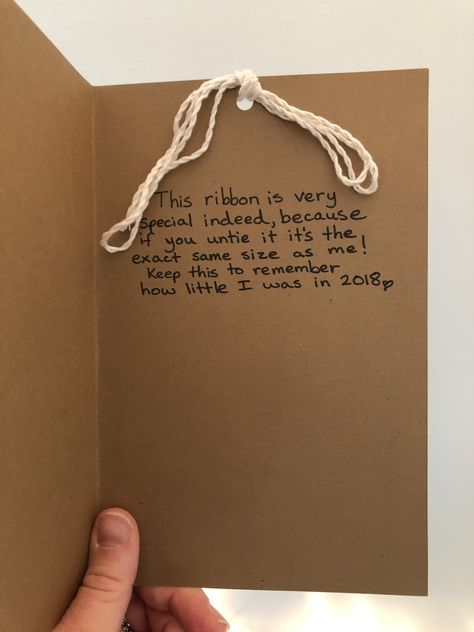 This ribbon is very
special indeed, because
if you untie it it's the
exact same size as me!
Keep this to remember
how little I was in 2018♥